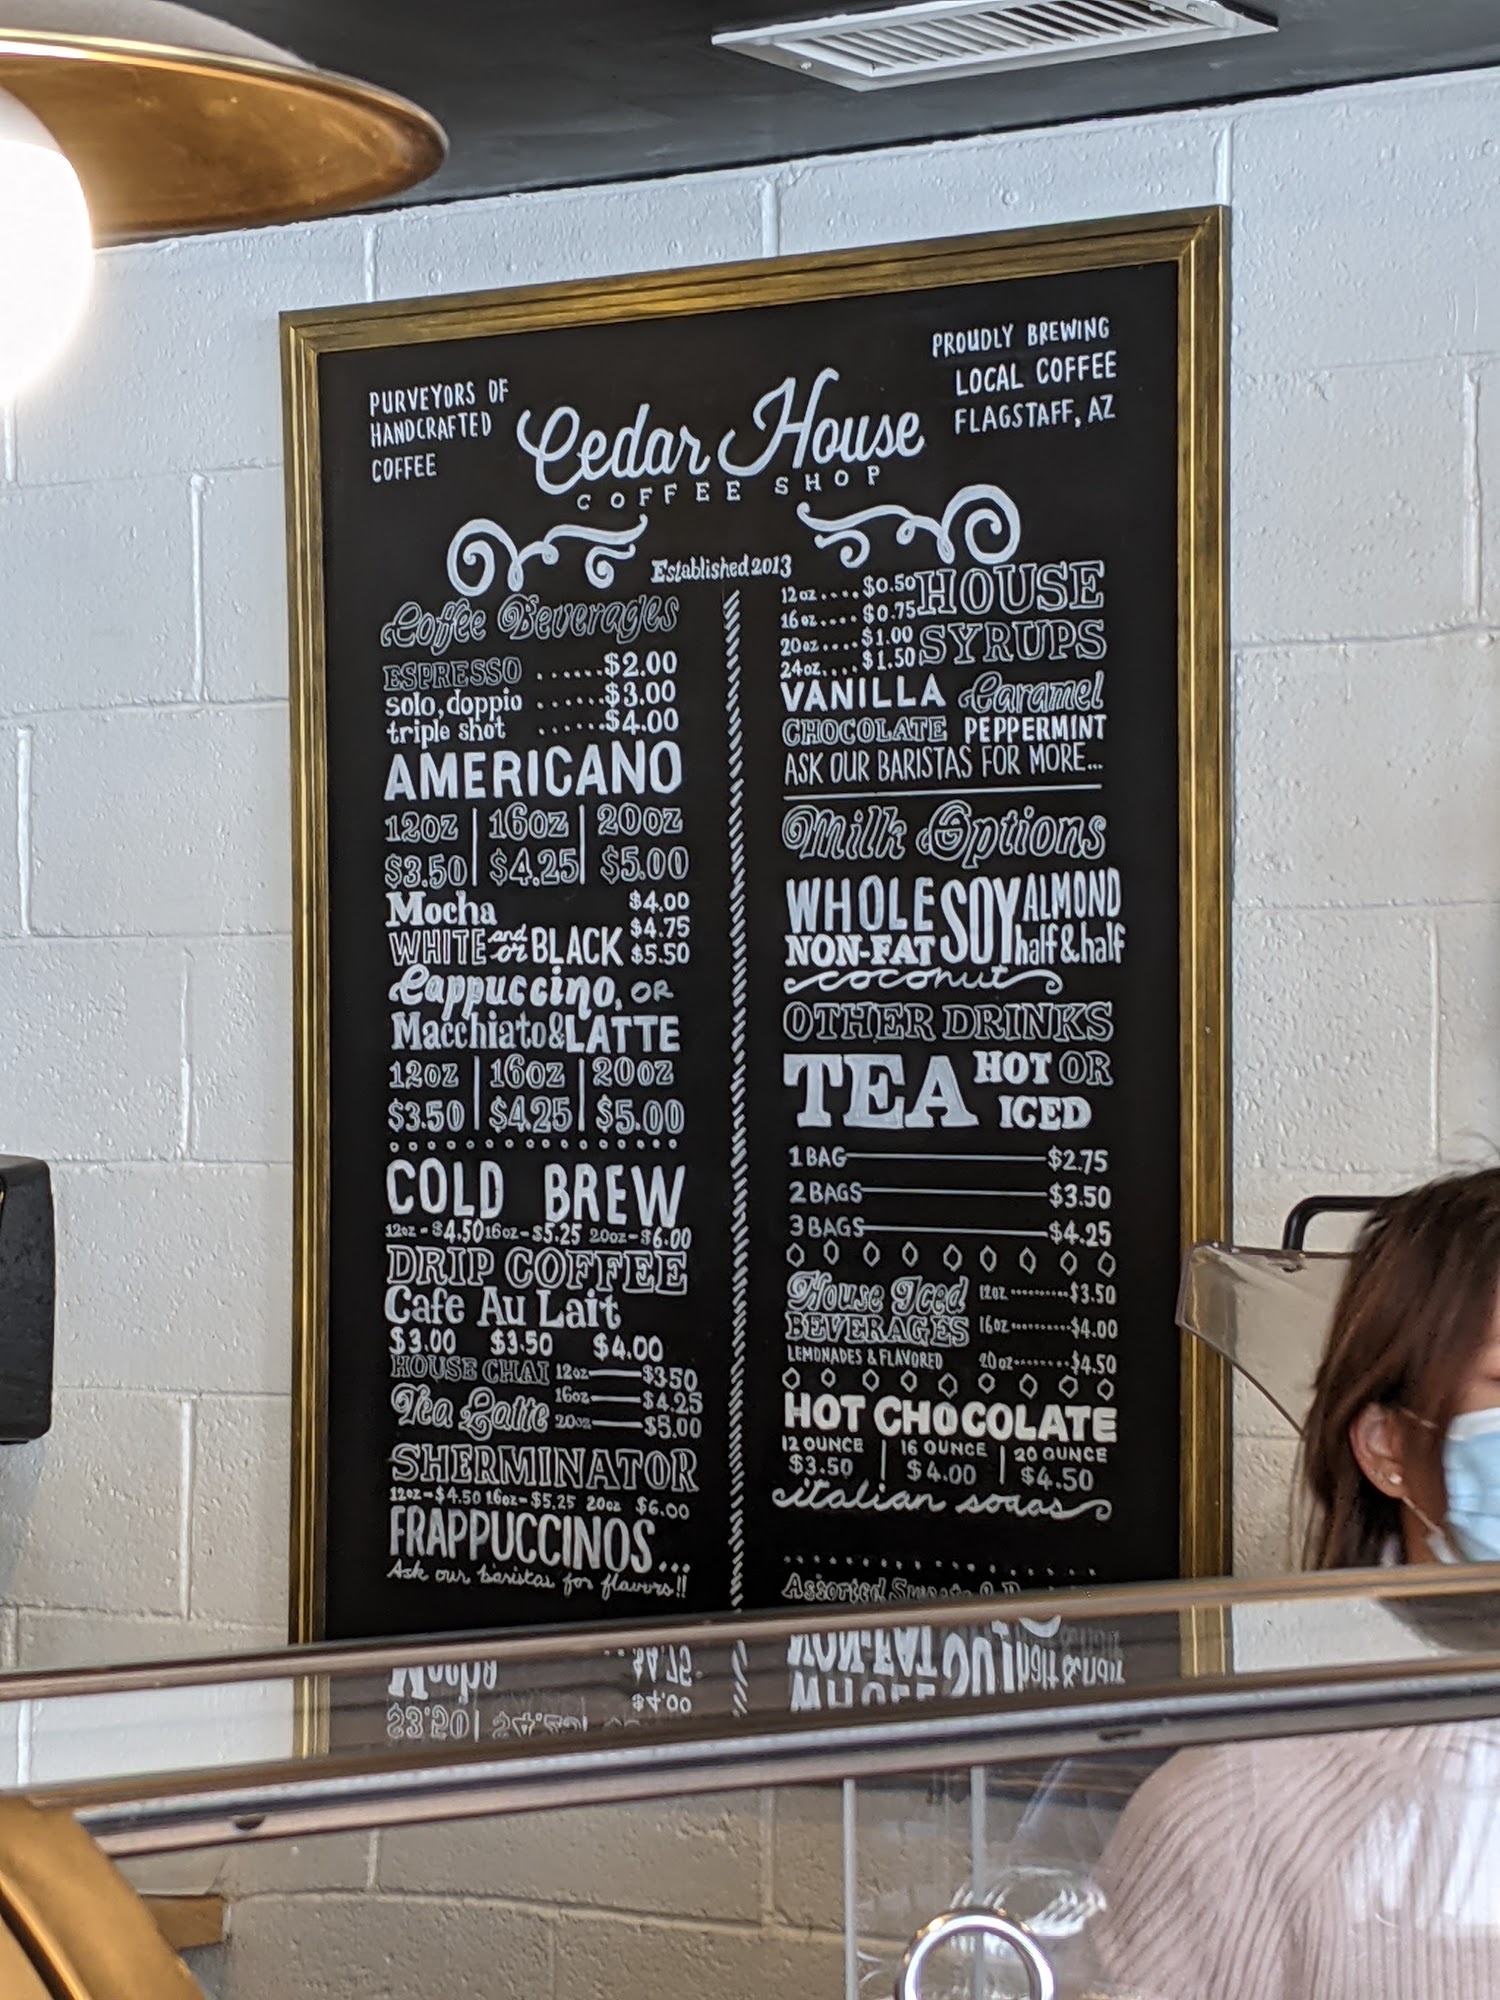 PURVEYORS OF
HANDCRAFTED
COFFEE
PROUDLY BREWING
LOCAL COFFEE
FLAGSTAFF, AZ
Cedar House
COFFEE SHOP
Established 2013
Coffee Beverages
ESPRESSO ...... $2.00
solo, doppio ...... $3.00
triple shot ...... $4.00
AMERICANO
12oz | 16oz | 20oz
$3.50 | $4.25 | $5.00
Mocha $4.00
WHITE and or BLACK $4.75
$5.50
Cappuccino, OR
Macchiato & LATTE
12oz | 16oz | 20oz
$3.50 | $4.25 | $5.00
COLD BREW
12oz - $4.50 16oz - $5.25 20oz - $6.00
DRIP COFFEE
Cafe Au Lait
$3.00 $3.50 $4.00
HOUSE CHAI 12oz $3.50
Tea Latte 16oz $4.25
20oz $5.00
SHERMINATOR
12oz - $4.50 16oz - $5.25 20oz $6.00
FRAPPUCCINOS...
Ask our baristas for flavors!!
12oz .... $0.50 HOUSE
16oz .... $0.75
20oz .... $1.00 SYRUPS
24oz .... $1.50
VANILLA Caramel
CHOCOLATE PEPPERMINT
ASK OUR BARISTAS FOR MORE...
Milk Options
WHOLE SOY ALMOND
NON-FAT half & half
coconut
OTHER DRINKS
TEA HOT OR
ICED
1 BAG $2.75
2 BAGS $3.50
3 BAGS $4.25
House Iced 12oz .......... $3.50
BEVERAGES 16oz .......... $4.00
LEMONADES & FLAVORED 20oz ........ $4.50
HOT CHOCOLATE
12 OUNCE | 16 OUNCE | 20 OUNCE
$3.50 | $4.00 | $4.50
italian sodas
Assorted Sweets &